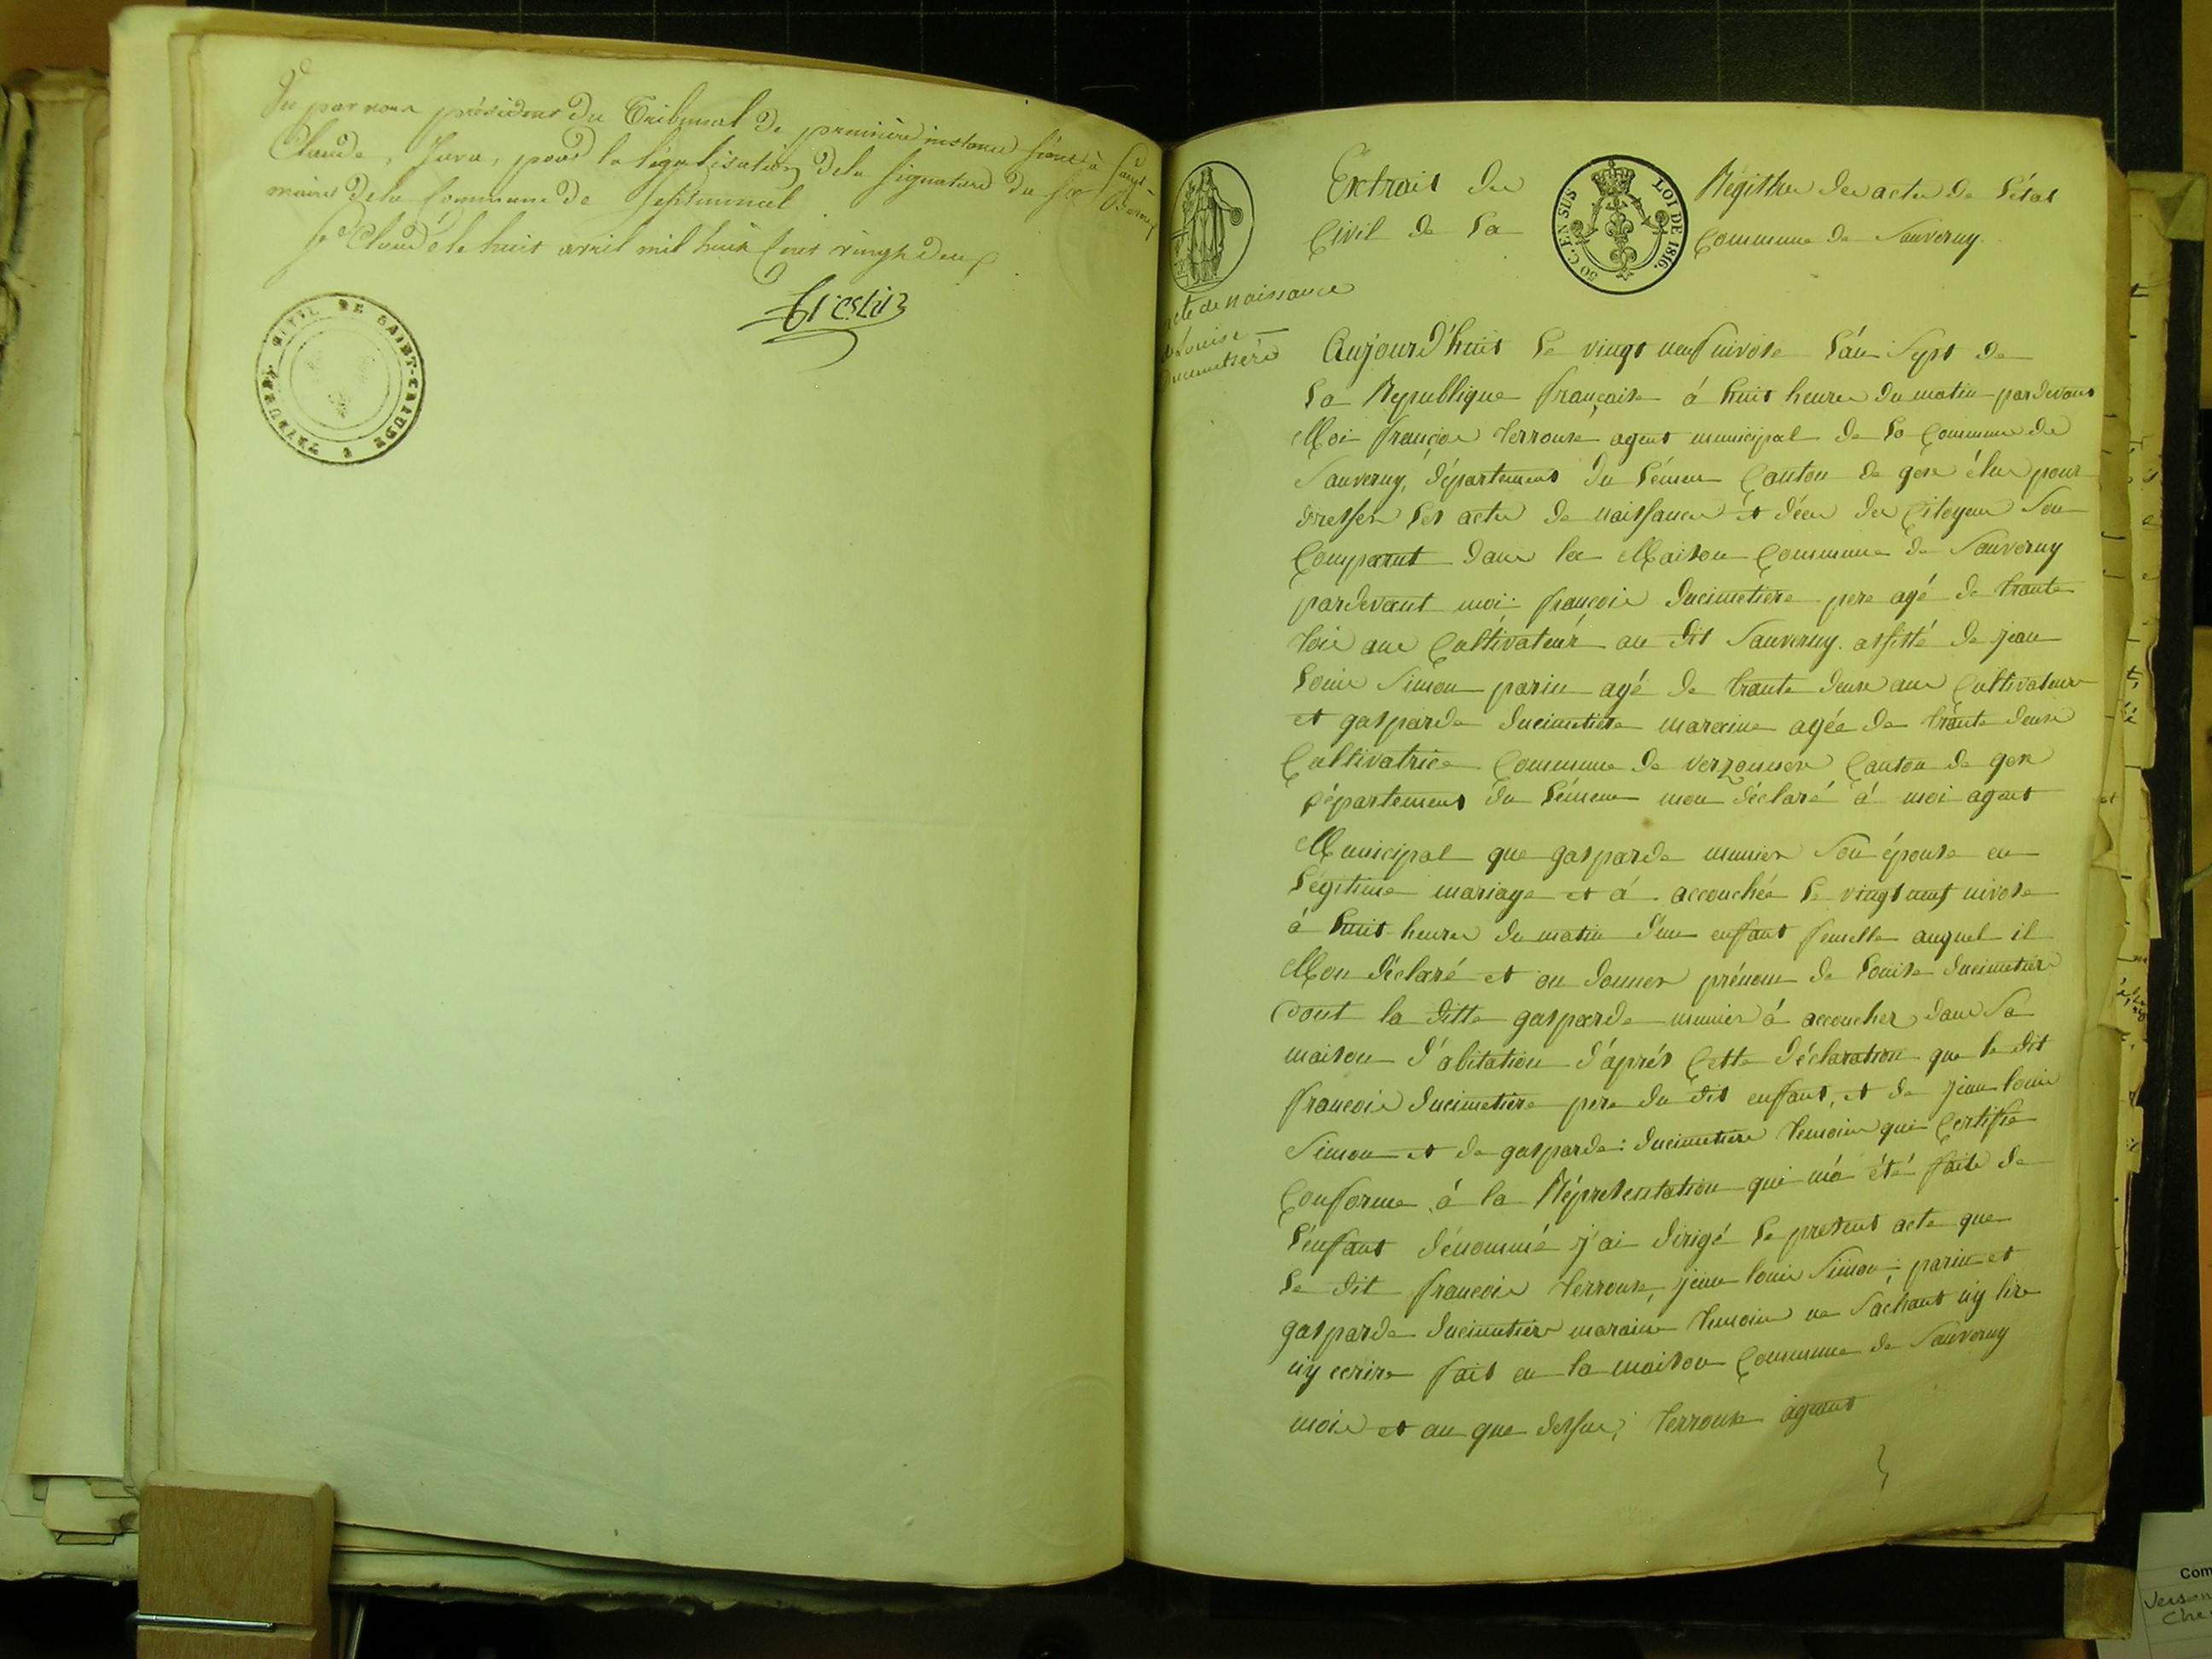 Vu par nous président du Tribunal de première instance séant à Saint-
Claude, Jura, pour la légalisation de la signature du Sr
maire de la Commune de Septmoncel
St Claude le huit avril mil huit cent vingt deux
TRIBUNAL CIVIL DE SAINT-CLAUDE
Extrait du Régistre des actes de l'état
Civil de la Commune de Sauverny
50 C. EN SUS LOI DE 1816.
acte de naissance
de Louise
Ducimetière
Aujourd'huit le vingt neuf nivose l'an Sept de
la Republique française à huit heures du matin pardevant
Moi françois terroux agent municipal de la Commune de
Sauverny, département du Léman Canton de gex élu pour
dresser les actes de naissance et décé des Citoyens Son
Comparut dans la Maison Commune de Sauverny
pardevant moi françois ducimetière pere agé de trante
trois ans Cultivateur au dit Sauverny assisté de jean
Louis Simon parin agé de trante deux ans Cultivateur
et gasparde ducimetière maraine agée de trante deux
Cultivatrice Commune de verzonnex Canton de gex
département du Léman mon déclaré à moi agent
Municipal que gasparde munier Son épouse en
légitime mariage et à accouchée le vingt neuf nivose
à huit heures du matin d'un enffant femelle auquel il
Mon déclaré et on donner prénom de Louise ducimetière
dont la ditte gasparde munier à accoucher dans Sa
maison d'abitation d'aprés Cette déclaration que le dit
françois ducimetière pere du dit enffant, et de jean louis
Simon et de gasparde ducimetière temoins qui Certiffie
Confforme à la Réprésentation qui m'a été faite de
l'enffant dénommé j'ai dirigé le present acte que
le dit françois terroux, jean louis Simon, parin et
gasparde ducimetière maraine temoins ne Sachant ny lire
ny ecrire fait en la maison Commune de Sauverny
mois et an que dessus, terroux agent